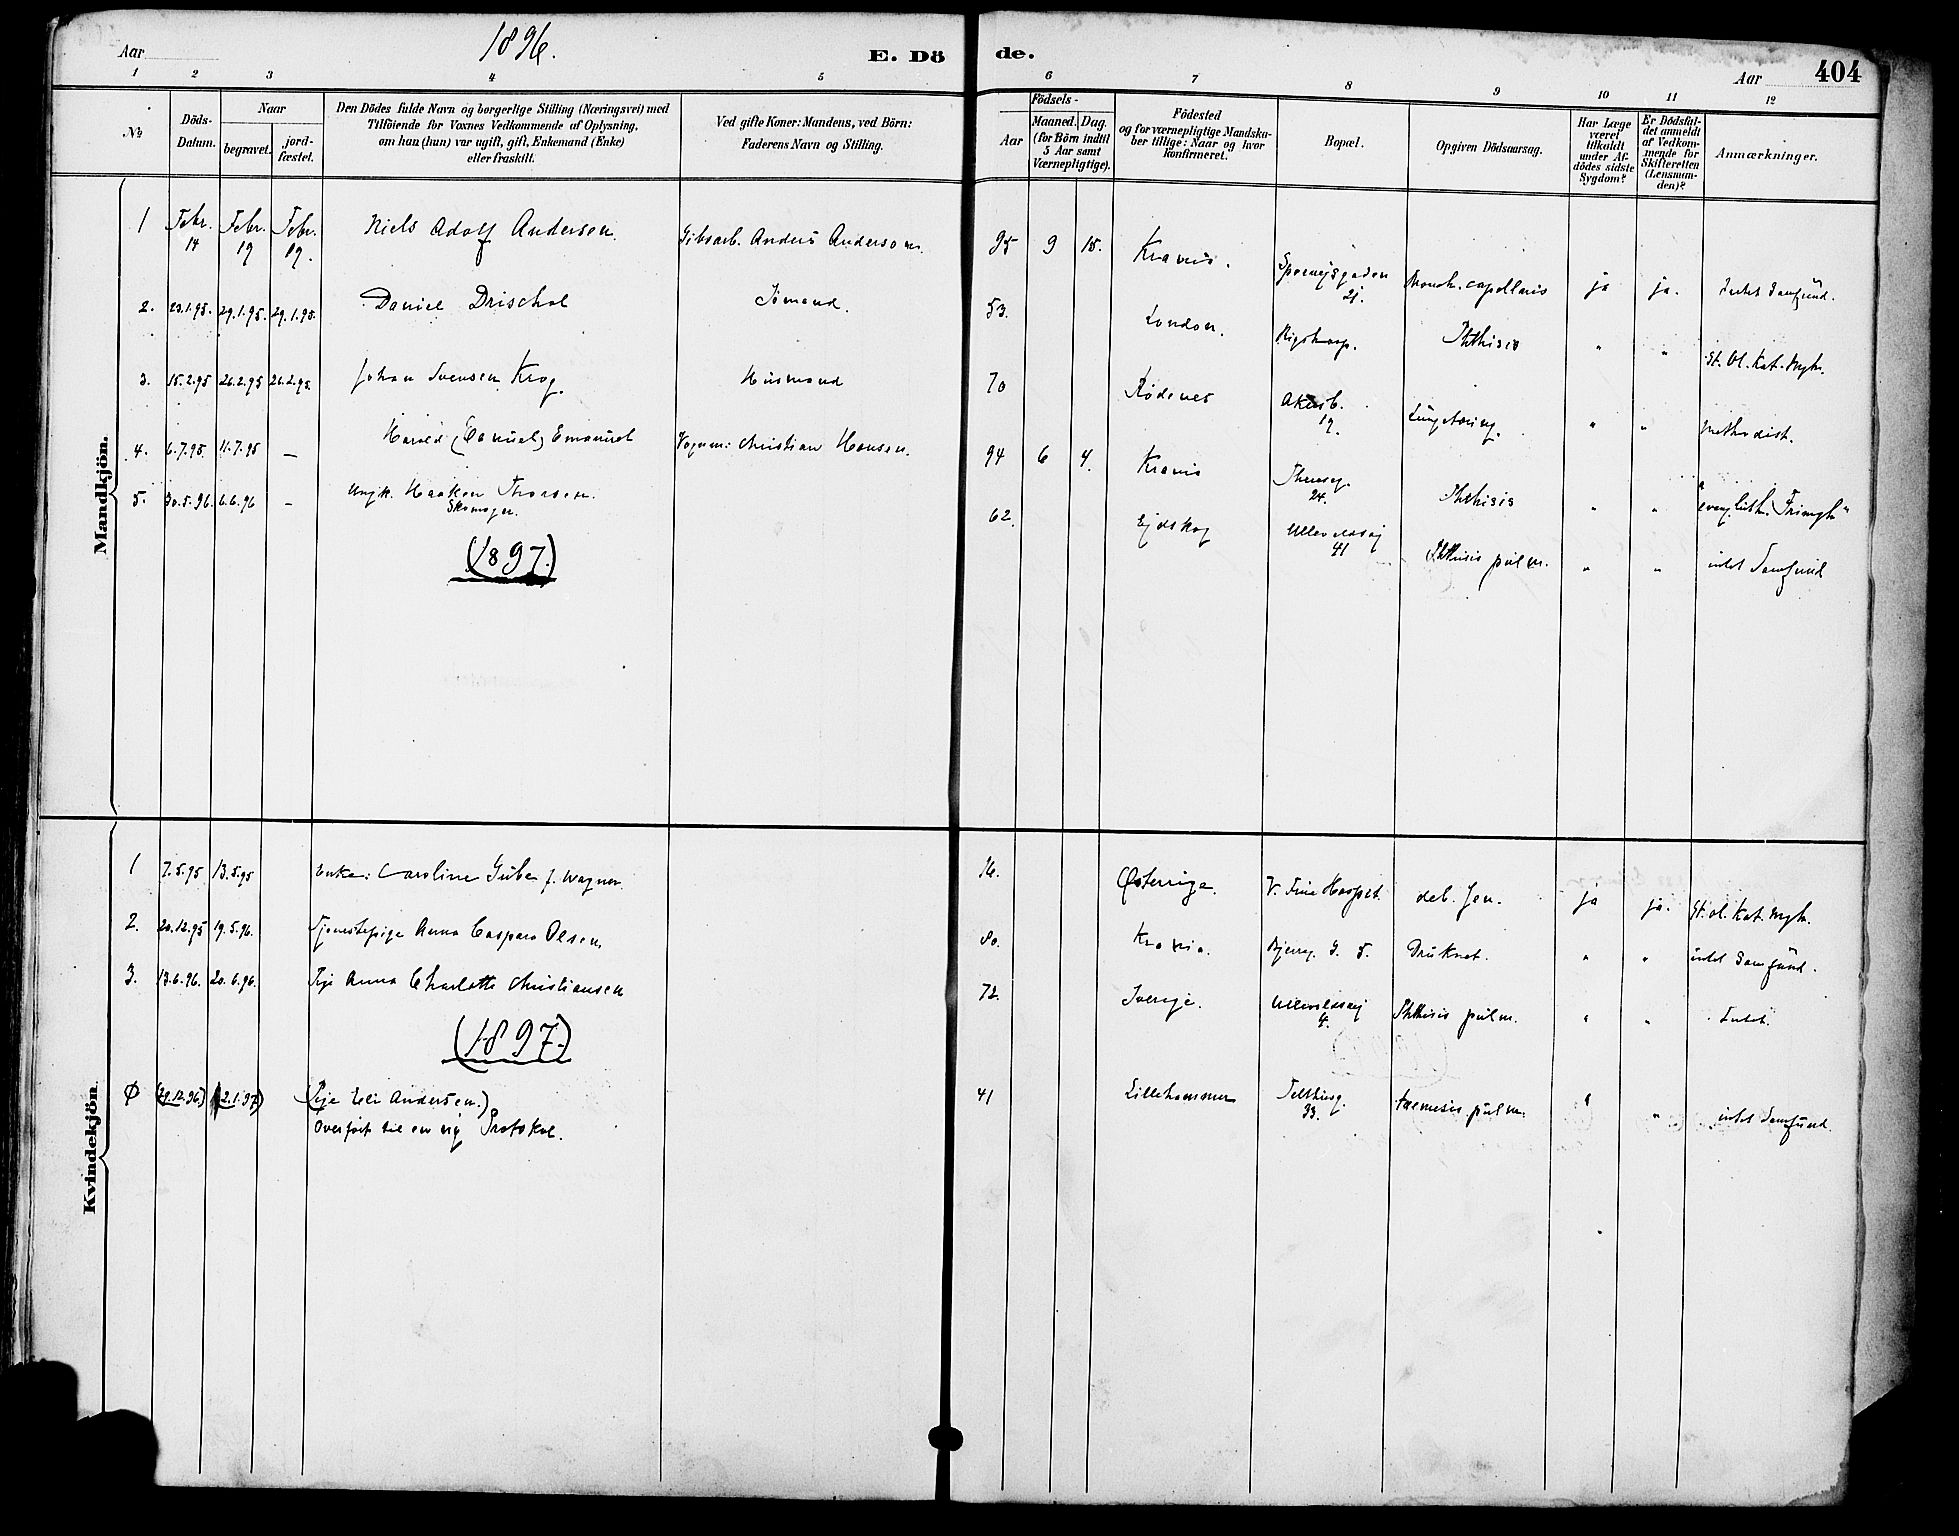 Aar 1896. E. Dö de. Aar 404
1 2 3 4 5 6 7 8 9 10 11 12
No
Döds-Datum.
Naar
begravet. jord-fæstet.
Den Dödes fulde Navn og borgerlige Stilling (Næringsvei) med
Tilföiende for Voxnes Vedkommende af Oplysning,
om han (hun) var ugift, gift, Enkemand (Enke)
eller fraskilt.
Ved gifte Koner: Mandens, ved Börn:
Faderens Navn og Stilling.
Födsels-
Aar Maaned. Dag.
(for Börn indtil
5 Aar samt
Værnepligtige).
Födested
og for værnepligtige Mandska-
ber tillige: Naar og hvor
konfirmeret.
Bopæl.
Opgiven Dödsaarsag.
Har Læge
været
tilkaldt
under Af-
dödes sidste
Sygdom?
Er Dödsfal-
det anmeldt
af Vedkom-
mende for
Skifteretten
(Lensman-
den)?
Anmærkninger.
Mandkjön.
1 Febr. 14 Febr. 19 Febr. 19. Niels Adolf Andersen. Anders Andersen. 95 9 15. Krania. 21. Bronch. capillaris ja ja. Intet Samfund.
2. 23.1.95. 29.1.95. 29.1.95. Daniel Drischol Sömand. 53. London. Rigshosp. Phthisis " " St. Ol. Kat. Mgh.
3. 15.2.95 26.2.95 26.2.95. Johan Svensen Krog. Husmand 70 Rødenes Akersb. 19. Lungetæring. " " Methodist.
4. 6.7.95. 11.7.95 — Harald (Samuel) Emanuel Vognm: Christian Hansen. 94 6 4. Krania Thereseg. 24. Phthisis " " evang. luth. Frimgh "
5. 30.5.96. 6.6.96 — Ungk. Haaken Thorsen. Skomager. 62. Ejdskog Ullevoldsvej 41 Phthisis pulm. " " intet Samfund
(1897.)
Kvindekjön
1 7.5.95 13.5.95 Enke: Caroline Gube f. Wagner 16. Østerrige. deb. sen. ja ja. St. ol. Kat. Mgh.
2. 20.12.95 19.5.96. Tjenestepige Anna Caspara Olsen. 80. Krania. Bjerrg. G. 5. Druknet. " " intet Samfund.
3. 13.6.96. 20.6.96. Pige Anna Charlotte Christiansen 72. Sverige. Ullevoldsvej 4. Phthisis pulm. " " Intet.
(1897.)
Ø (29.12.96) (2.1.97) (Pige Eli Andersen.) 41 Lillehammer 33. pulm. " " intet Samfund.
Overført til en ny Protokol.